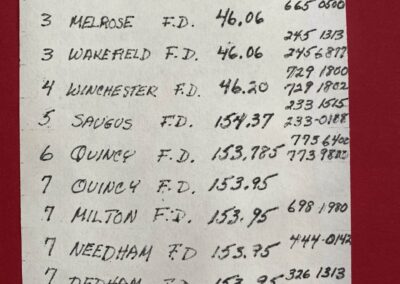 665 0500
3 MELROSE F.D. 46.06
245 1313
3 WAKEFIELD F.D. 46.06 245 6877
729 1800
4 WINCHESTER F.D. 46.20 729 1802
233 1515
5 SAUGUS F.D. 154.37 233-0188
773 6400
6 QUINCY F.D. 153.785 773
7 QUINCY F.D. 153.95
7 MILTON F.D. 153.95 698 1980
7 NEEDHAM F.D 153.75 444-0142
7 DEDHAM F.D. 153.95 326 1313